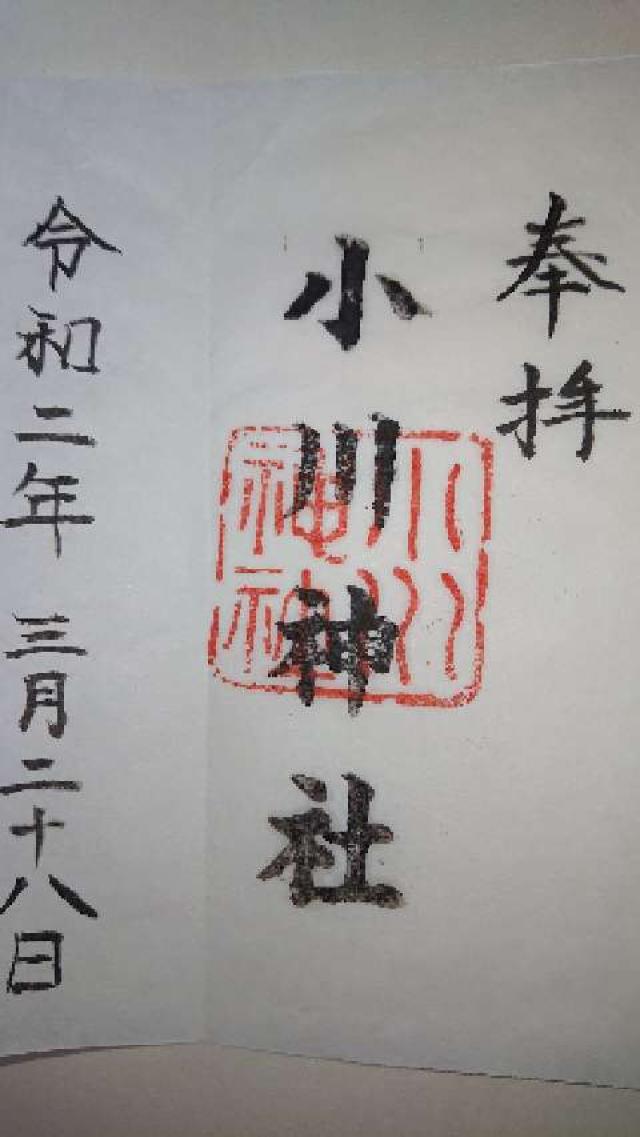 奉拝
小川神社
小川神社
令和二年 三月二十八日